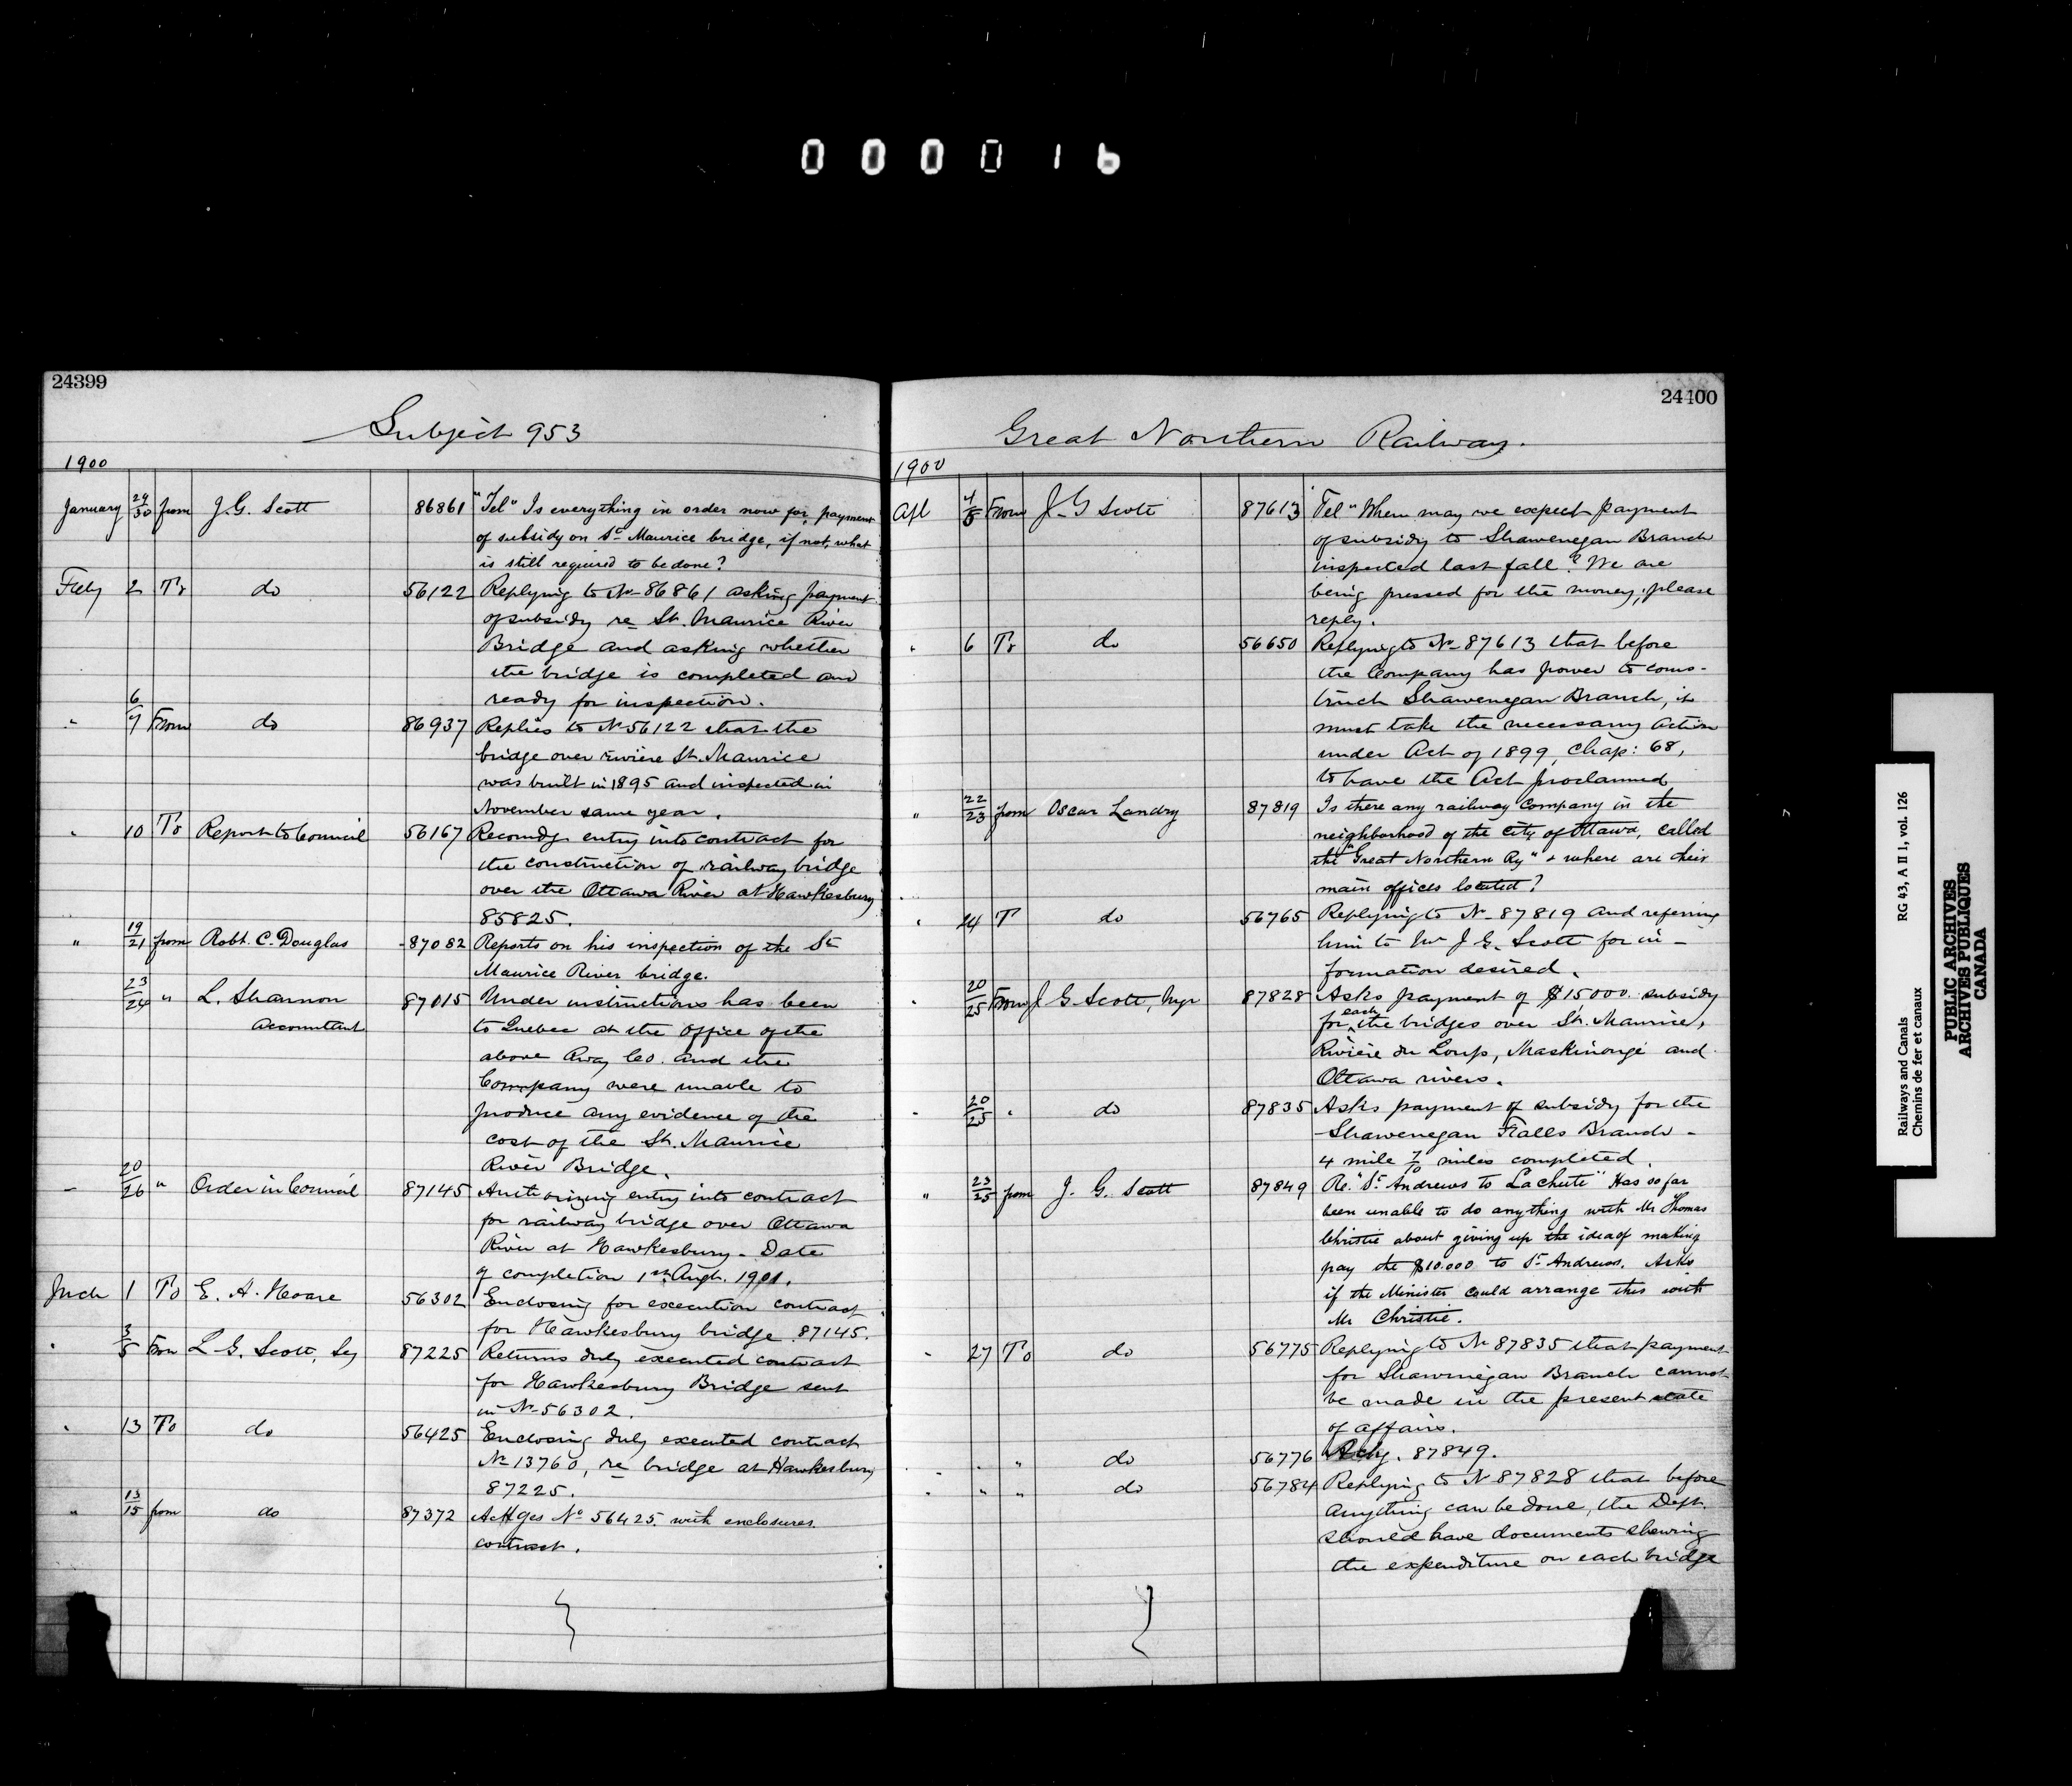 000016
24399
Subject 953
1900
January 29/30 from J. G. Scott 86861 "Tel" Is everything in order now for payment
of subsidy on St Maurice bridge, if not, what
is still required to be done?
Feby 2 To do 56122 Replying to No 86861 asking payment
of subsidy re St. Maurice River
Bridge and asking whether
the bridge is completed and
ready for inspection.
" 6/7 From do 86937 Replies to No 56122 that the
bridge over rivière St. Maurice
was built in 1895 and inspected in
November same year.
" 10 To Report to Council 56167 Recomdg entry into contract for
the construction of railway bridge
over the Ottawa River at Hawkesbury
85825.
" 19/21 from Robt. C. Douglas 87082 Reports on his inspection of the St
Maurice River bridge.
23/24 " L. Shannon 87015 Under instructions has been
Accountant to Quebec at the office of the
above Rway Co. and the
Company were unable to
produce any evidence of the
cost of the St. Maurice
River Bridge.
" 20/26 " Order in Council 87145 Authorizing entry into contract
for railway bridge over Ottawa
River at Hawkesbury - Date
of completion 1st Augt. 1901.
Mch 1 To E. A. Hoare 56302 Enclosing for execution contract
for Hawkesbury bridge 87145.
" 3/5 From L G. Scott, Sey 87225 Returns duly executed contract
for Hawkesbury Bridge sent
in No 56302.
" 13 To do 56425 Enclosing duly executed contract
No 13760, re bridge at Hawkesbury
87225.
" 13/15 from do 87372 Ackges No 56425. with enclosures.
contract.
24400
Great Northern Railway.
1900
Apl 4/5 From J. G Scott 87613 Tel "When may we expect payment
of subsidy to Shawenegan Branch
inspected last fall? We are
being pressed for the money; please
reply.
" 6 To do 56650 Replying to No 87613 that before
the Company has power to cons-
truct Shawenegan Branch, it
must take the necessary action
under Act of 1899, Chap: 68,
to have the Act proclaimed
" 22/23 from Oscar Landry 87819 Is there any railway Company in the
neighborhood of the City of Ottawa, called
the "Great Northern Ry" + where are their
main offices located?
" 24 T do 56765 Replying to No 87819 and referring
him to Mr J. G. Scott for in-
formation desired.
" 20/25 From J G Scott, Mgr 87828 Asks payment of $15000. subsidy
for each the bridges over St. Maurice,
Rivière du Loup, Maskinongé and
Ottawa rivers.
" 20/25 " do 87835 Asks payment of subsidy for the
Shawenegan Falls Branch -
4 mile 7/10 miles completed.
" 23/25 from J. G. Scott 87849 Re. "St Andrews to Lachute" Has so far
been unable to do anything with Mr Thomas
Christie about giving up the idea of making
pay the $10.000 to St Andrews. Asks
if the Minister could arrange this with
Mr Christie.
" 27 To do 56775 Replying to No 87835 that payment
for Shawinigan Branch cannot
be made in the present state
of affairs.
" " do 56776 Ackg. 87849.
" " " do 56784 Replying to No 87828 that before
anything can be done, the Dept.
should have documents shewing
the expenditure on each bridge
Railways and Canals RG 43, A II 1, vol. 126
Chemins de fer et canaux
PUBLIC ARCHIVES
ARCHIVES PUBLIQUES
CANADA